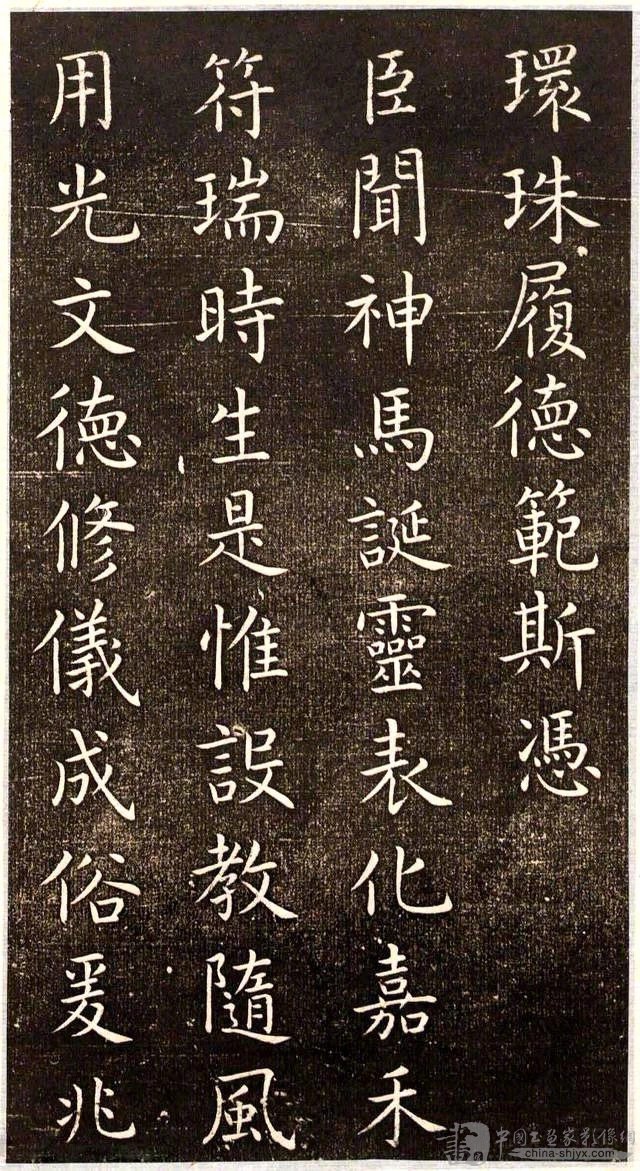 環珠履德範斯憑
臣聞神馬誕靈表化嘉禾
符瑞時生是惟設教隨風
用光文德修儀成俗爰兆
中國書畫家影像網
china-shjyx.com